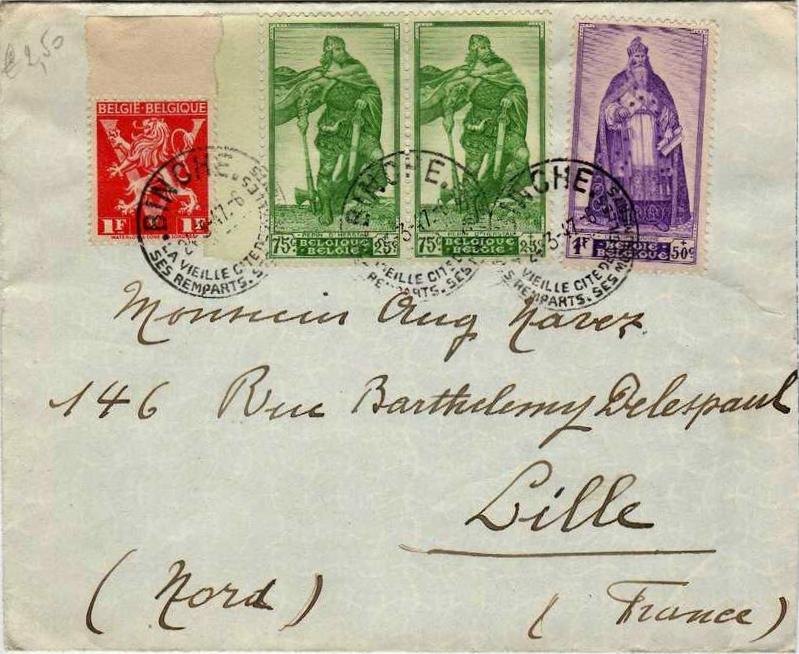 € 2,50
BELGIE-BELGIQUE
1F 1F
75c BELGIQUE BELGIE 25c
75c BELGIQUE BELGIE 25c
1F BELGIE BELGIQUE + 50c
BINCHE
LA VIEILLE CITE
SES REMPARTS. SES
BINCHE
VIEILLE CITE
REMPARTS. SES
BINCHE
A VIEILLE CITE DE
SES REMPARTS. SES
Monsieur Aug Narez
146 Rue Barthelemy Delespaul
Lille
(Nord) (France)